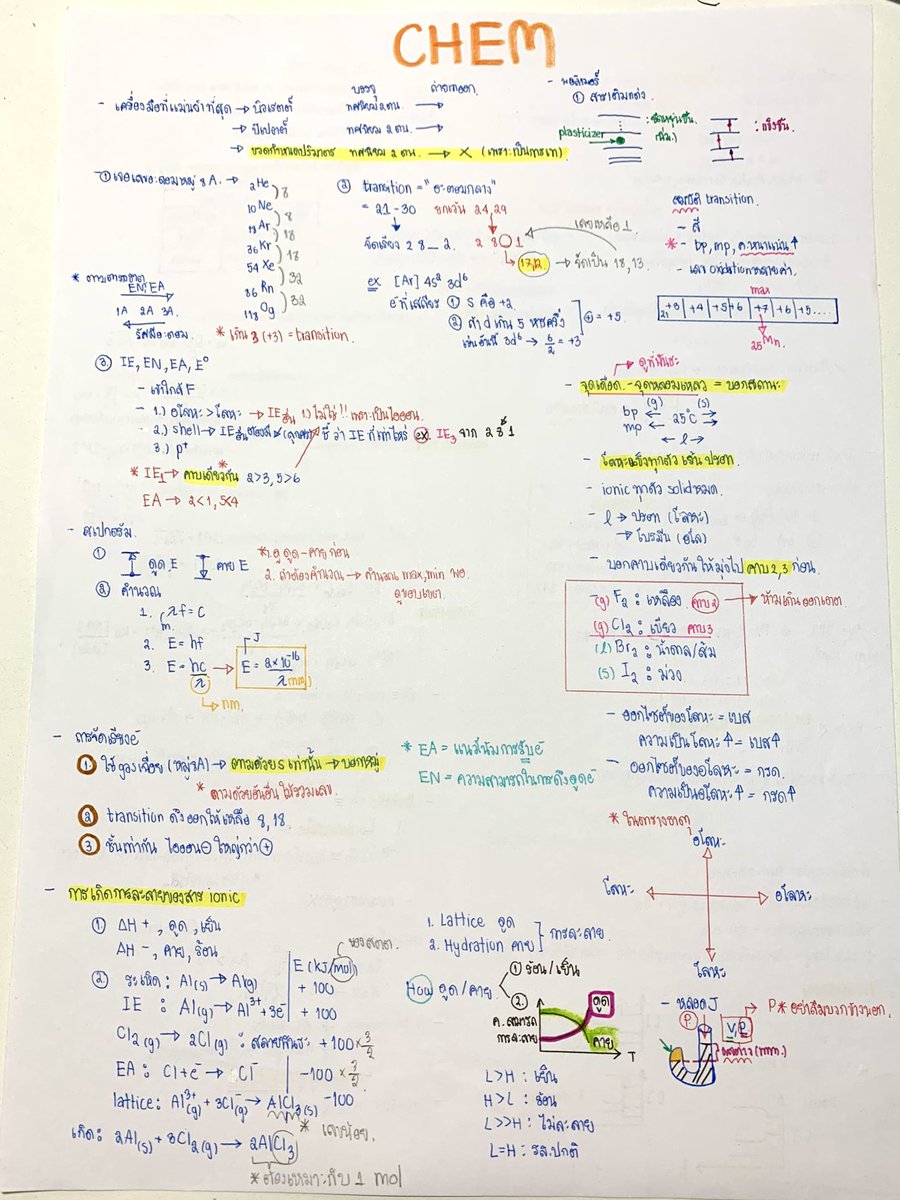 CHEM
บรรจุ ถ่ายเทออก
- เครื่องมือที่แม่นยำที่สุด → บิวเรตต์ ทศนิยม 2 ตน. →
→ ปิเปตต์ ทศนิยม 2 ตน. →
→ ขวดกำหนดปริมาตร ทศนิยม 2 ตน. → X (เพราะเป็นการเท)
- พอลิเมอร์
① สารเติมแต่ง
plasticizer
: ยืดหยุ่นขึ้น
(นิ่ม)
: แข็งขึ้น
① เจอเลขอะตอมหมู่ 8A. →
2He
10Ne
18Ar
36Kr
54Xe
86Rn
118Og
8
8
18
18
32
32
* ตามตารางธาตุ
EN, EA
1A 2A 3A.
รัศมีอะตอม
* เกิน 3 (+3) = transition
② transition = "อะตอมกลาง"
= 21-30 ยกเว้น 24,29
จัดเรียง 2 8 _ 2.
2 8 ○ 1
เคยเหลือ 1
17,12 → จัดเป็น 18,13.
ex [Ar] 4s² 3d⁶
① S คือ +2
② ถ้า d เกิน 5 หารครึ่ง
เช่นข้อนี้ 3d⁶ → 6/2 = +3
⊕ = +5.
สมบัติ transition.
- สี
* - bp, mp, ค.หนาแน่น ↑
- เลข oxidation หลายค่า.
max
+3 +4 +5 +6 +7 +6 +5 ....
21
25 Mn.
③ IE, EN, EA, E°
- เข้าใกล้ F
- 1.) อโลหะ > โลหะ → IE อื่น 1) ไม่ใช่!! เพราะเป็นไอออน.
- 2.) shell → ชี้ว่า IE ที่เท่าไหร่ ex. IE₃ จาก 2 8 1
3.) p⁺
* IE₁ → คาบเดียวกัน 2>3, 5>6
EA → 2<1, 5<4
ดูที่พันธะ
- จุดเดือด - จุดหลอมเหลว = บอกสถานะ
(g) (s)
bp ← 25°c → 
mp
← l →
- โลหะแข็งทุกตัว เว้น ปรอท
- ionic ทุกตัว solid หมด.
- l → ปรอท (โลหะ)
→ โบรมีน (อโล)
- บอกคาบเดียวกัน ให้มุ่งไป คาบ 2,3 ก่อน.
- (g) F₂ : เหลือง คาบ 2 → ห้ามเกินออกเตต
(g) Cl₂ : เขียว คาบ 3
(l) Br₂ : น้ำตาล/ส้ม
(s) I₂ : ม่วง
- สเปกตรัม
① ดูด E คาย E
*1. ดู ดูด-คาย ก่อน
2. ถ้าต้องคำนวณ → คำนวณ max, min พอ
ดูขอบเขต.
② คำนวณ
1. λf = c
m.
2. E = hf
3. E = hc/λ → E = 2×10⁻¹⁶/λ(nm)
J
nm.
- การจัดเรียง e⁻
① ใช้ gas เฉื่อย (หมู่ 8A) → ตามด้วย s เท่านั้น → บอกหมู่
* ตามด้วยอันอื่น ให้รวมเลข
② transition ดึงออกให้เหลือ 8, 18.
③ ชั้นเท่ากัน ไอออน ⊖ ใหญ่กว่า ⊕
* EA = แนวโน้มการรับ e⁻
EN = ความสามารถในการดึงดูด e⁻
- ออกไซด์ของโลหะ = เบส
ความเป็นโลหะ ↑ = เบส ↑
- ออกไซด์ของอโลหะ = กรด.
ความเป็นอโลหะ ↑ = กรด ↑
* ในตารางธาตุ
อโลหะ
โลหะ อโลหะ
โลหะ
- การเกิดการละลายของสาร ionic
① ΔH + , ดูด , เย็น
ΔH - , คาย , ร้อน
E (kJ/mol)
② ระเหิด : Al(s) → Al(g) + 100
IE : Al(g) → Al³⁺ + 3e⁻ + 100
Cl₂(g) → 2Cl(g) : สลายพันธะ +100 × 3/2
EA : Cl + e⁻ → Cl⁻ -100 × 3/2
lattice : Al³⁺(g) + 3Cl⁻(g) → AlCl₃(s) -100
เกิด : 2Al(s) + 3Cl₂(g) → 2AlCl₃
* เลขน้อย.
* ต้องเหมาะกับ 1 mol
1. Lattice ดูด
2. Hydration คาย
การละลาย
How ดูด/คาย
① ร้อน/เย็น
②
ค. สามารถ
การละลาย
ดูด
คาย
T
L>H : เย็น
H>L : ร้อน
L>>H : ไม่ละลาย
L=H : รส.ปกติ
- หลอด J
P
V, P
P * อย่าลืมบวกข้างนอก.
ผลต่าง (mm.)